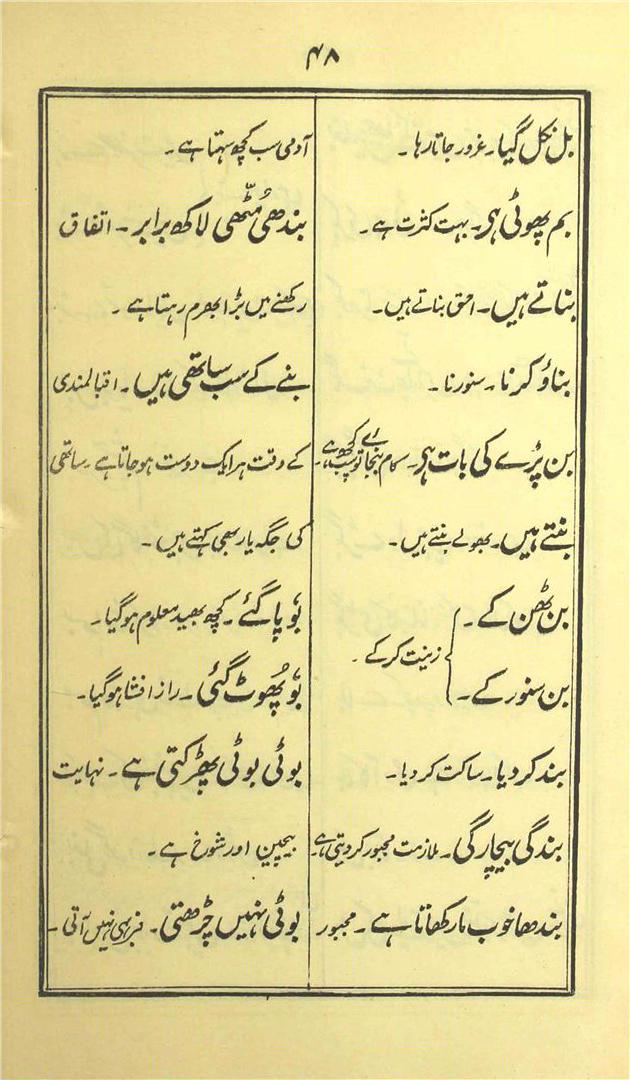 ۴۸
بل نکل گیا۔ غرور جاتا رہا۔
بم پھوٹی ہی۔ بہت کثرت ہے۔
بناتے ہیں۔ احمق بناتے ہیں۔
بناؤ کرنا۔ سنورنا۔
بن پڑے کی بات ہی۔ کام بنجائے تو سب کچھ ہے۔
بنتے ہیں۔ بھولے بنتے ہیں۔
بن ٹھن کے۔
زینت کرکے۔
بن سنور کے۔
بند کردیا۔ ساکت کردیا۔
بندگی بیچارگی۔ ملازمت مجبور کردیتی ہے۔
بندھا خوب مار کھاتا ہے۔ مجبور
آدمی سب کچھ سہتا ہے۔
بندھی مُٹّھی لاکھ برابر۔ اتفاق
رکھنے میں بڑا بھرم رہتا ہے۔
بنے کے سب ساتھی ہیں۔ اقبالمندی
کے وقت ہر ایک دوست ہوجاتا ہے۔ ساتھی
کی جگہ یار بھی کہتے ہیں۔
بُو پا گئے۔ کچھ بھید معلوم ہوگیا۔
بُو پھُوٹ گئی۔ راز افشا ہوگیا۔
بوٹی بوٹی پھڑکتی ہے۔ نہایت
بیچین اور شوخ ہے۔
بوٹی نہیں چڑھتی۔ فربہی نہیں آتی۔